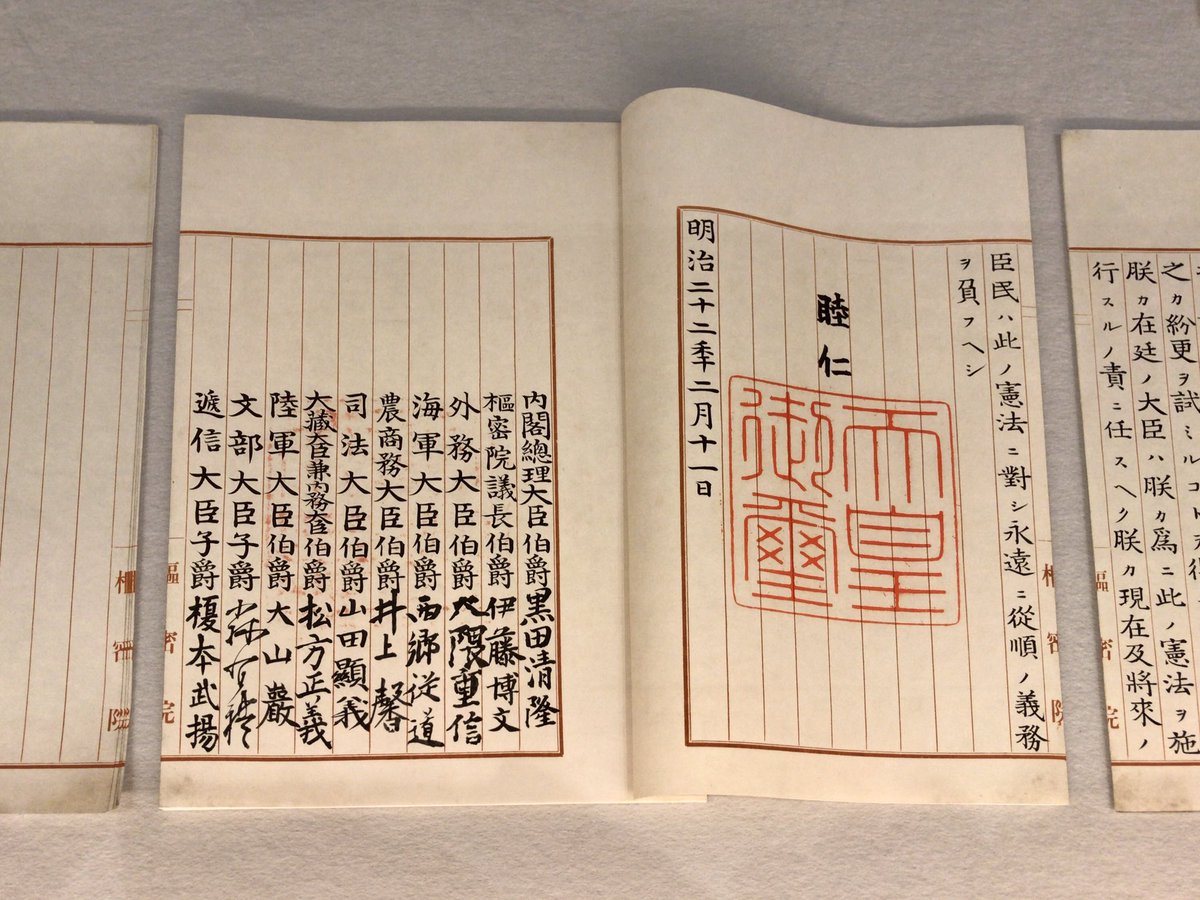 之カ紛更ヲ試ミルコ
朕カ在廷ノ大臣ハ朕カ爲ニ此ノ憲法ヲ施
行スルノ責ニ任スヘク朕カ現在及將來ノ
樞密院
臣民ハ此ノ憲法ニ對シ永遠ニ從順ノ義務
ヲ負フヘシ
睦仁
天皇
御璽
明治二十二秊二月十一日
內閣總理大臣伯爵黑田清隆
樞密院議長伯爵伊藤博文
外務大臣伯爵大隈重信
海軍大臣伯爵西鄉從道
農商務大臣伯爵井上馨
司法大臣伯爵山田顯義
大藏大臣兼內務大臣伯爵松方正義
陸軍大臣伯爵大山巖
文部大臣子爵森有禮
遞信大臣子爵榎本武揚
樞密院